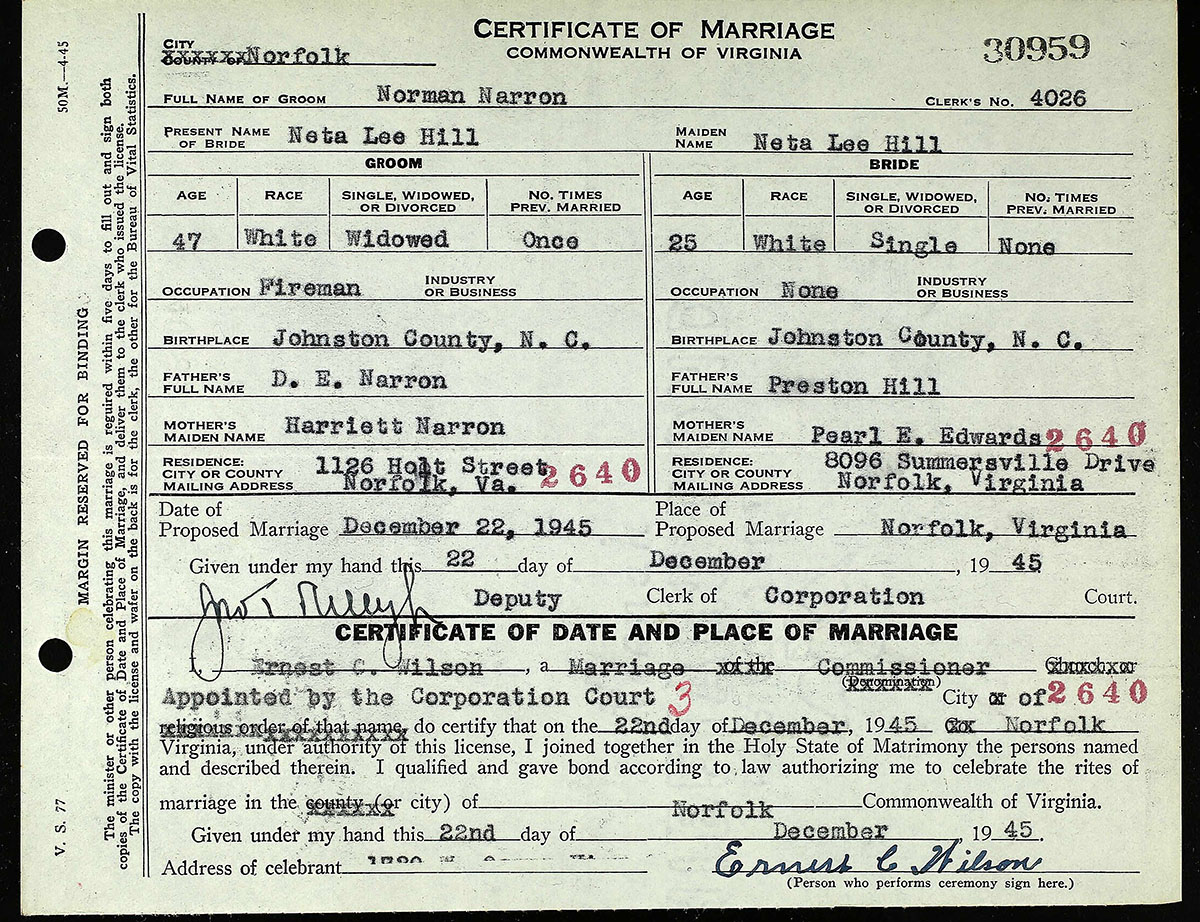 CERTIFICATE OF MARRIAGE
COMMONWEALTH OF VIRGINIA
30959
CITY
COUNTY OF Norfolk
FULL NAME OF GROOM Norman Narron CLERK'S NO. 4026
PRESENT NAME OF BRIDE Neta Lee Hill MAIDEN NAME Neta Lee Hill
GROOM BRIDE
AGE RACE SINGLE, WIDOWED, OR DIVORCED NO. TIMES PREV. MARRIED AGE RACE SINGLE, WIDOWED, OR DIVORCED NO. TIMES PREV. MARRIED
47 White Widowed Once 25 White Single None
OCCUPATION Fireman INDUSTRY OR BUSINESS OCCUPATION None INDUSTRY OR BUSINESS
BIRTHPLACE Johnston County, N. C. BIRTHPLACE Johnston County, N. C.
FATHER'S FULL NAME D. E. Narron FATHER'S FULL NAME Preston Hill
MOTHER'S MAIDEN NAME Harriett Narron MOTHER'S MAIDEN NAME Pearl E. Edwards 2640
RESIDENCE: CITY OR COUNTY MAILING ADDRESS 1126 Holt Street Norfolk, Va. 2640 RESIDENCE: CITY OR COUNTY MAILING ADDRESS 8096 Summersville Drive Norfolk, Virginia
Date of Proposed Marriage December 22, 1945 Place of Proposed Marriage Norfolk, Virginia
Given under my hand this 22 day of December, 19 45
Deputy Clerk of Corporation Court.
CERTIFICATE OF DATE AND PLACE OF MARRIAGE
I, Ernest C. Wilson, a Marriage of the Commissioner Church or
(Denomination)
Appointed by the Corporation Court 3 City or of 2640
religious order of that name, do certify that on the 22nd day of December, 1945 Norfolk
Virginia, under authority of this license, I joined together in the Holy State of Matrimony the persons named
and described therein. I qualified and gave bond according to law authorizing me to celebrate the rites of
marriage in the county (or city) of Norfolk Commonwealth of Virginia.
Given under my hand this 22nd day of December, 19 45.
Address of celebrant Ernest C Wilson
(Person who performs ceremony sign here.)
50M.—4-45
MARGIN RESERVED FOR BINDING
V. S. 77
The minister or other person celebrating this marriage is required within five days to fill out and sign both
copies of the Certificate of Date and Place of Marriage, and deliver them to the clerk who issued the license.
The copy with the license and wafer on the back is for the clerk, the other for the Bureau of Vital Statistics.